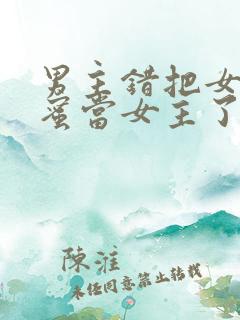 男主错把女
蜜当女主了
陳淮
未任同意禁止转载